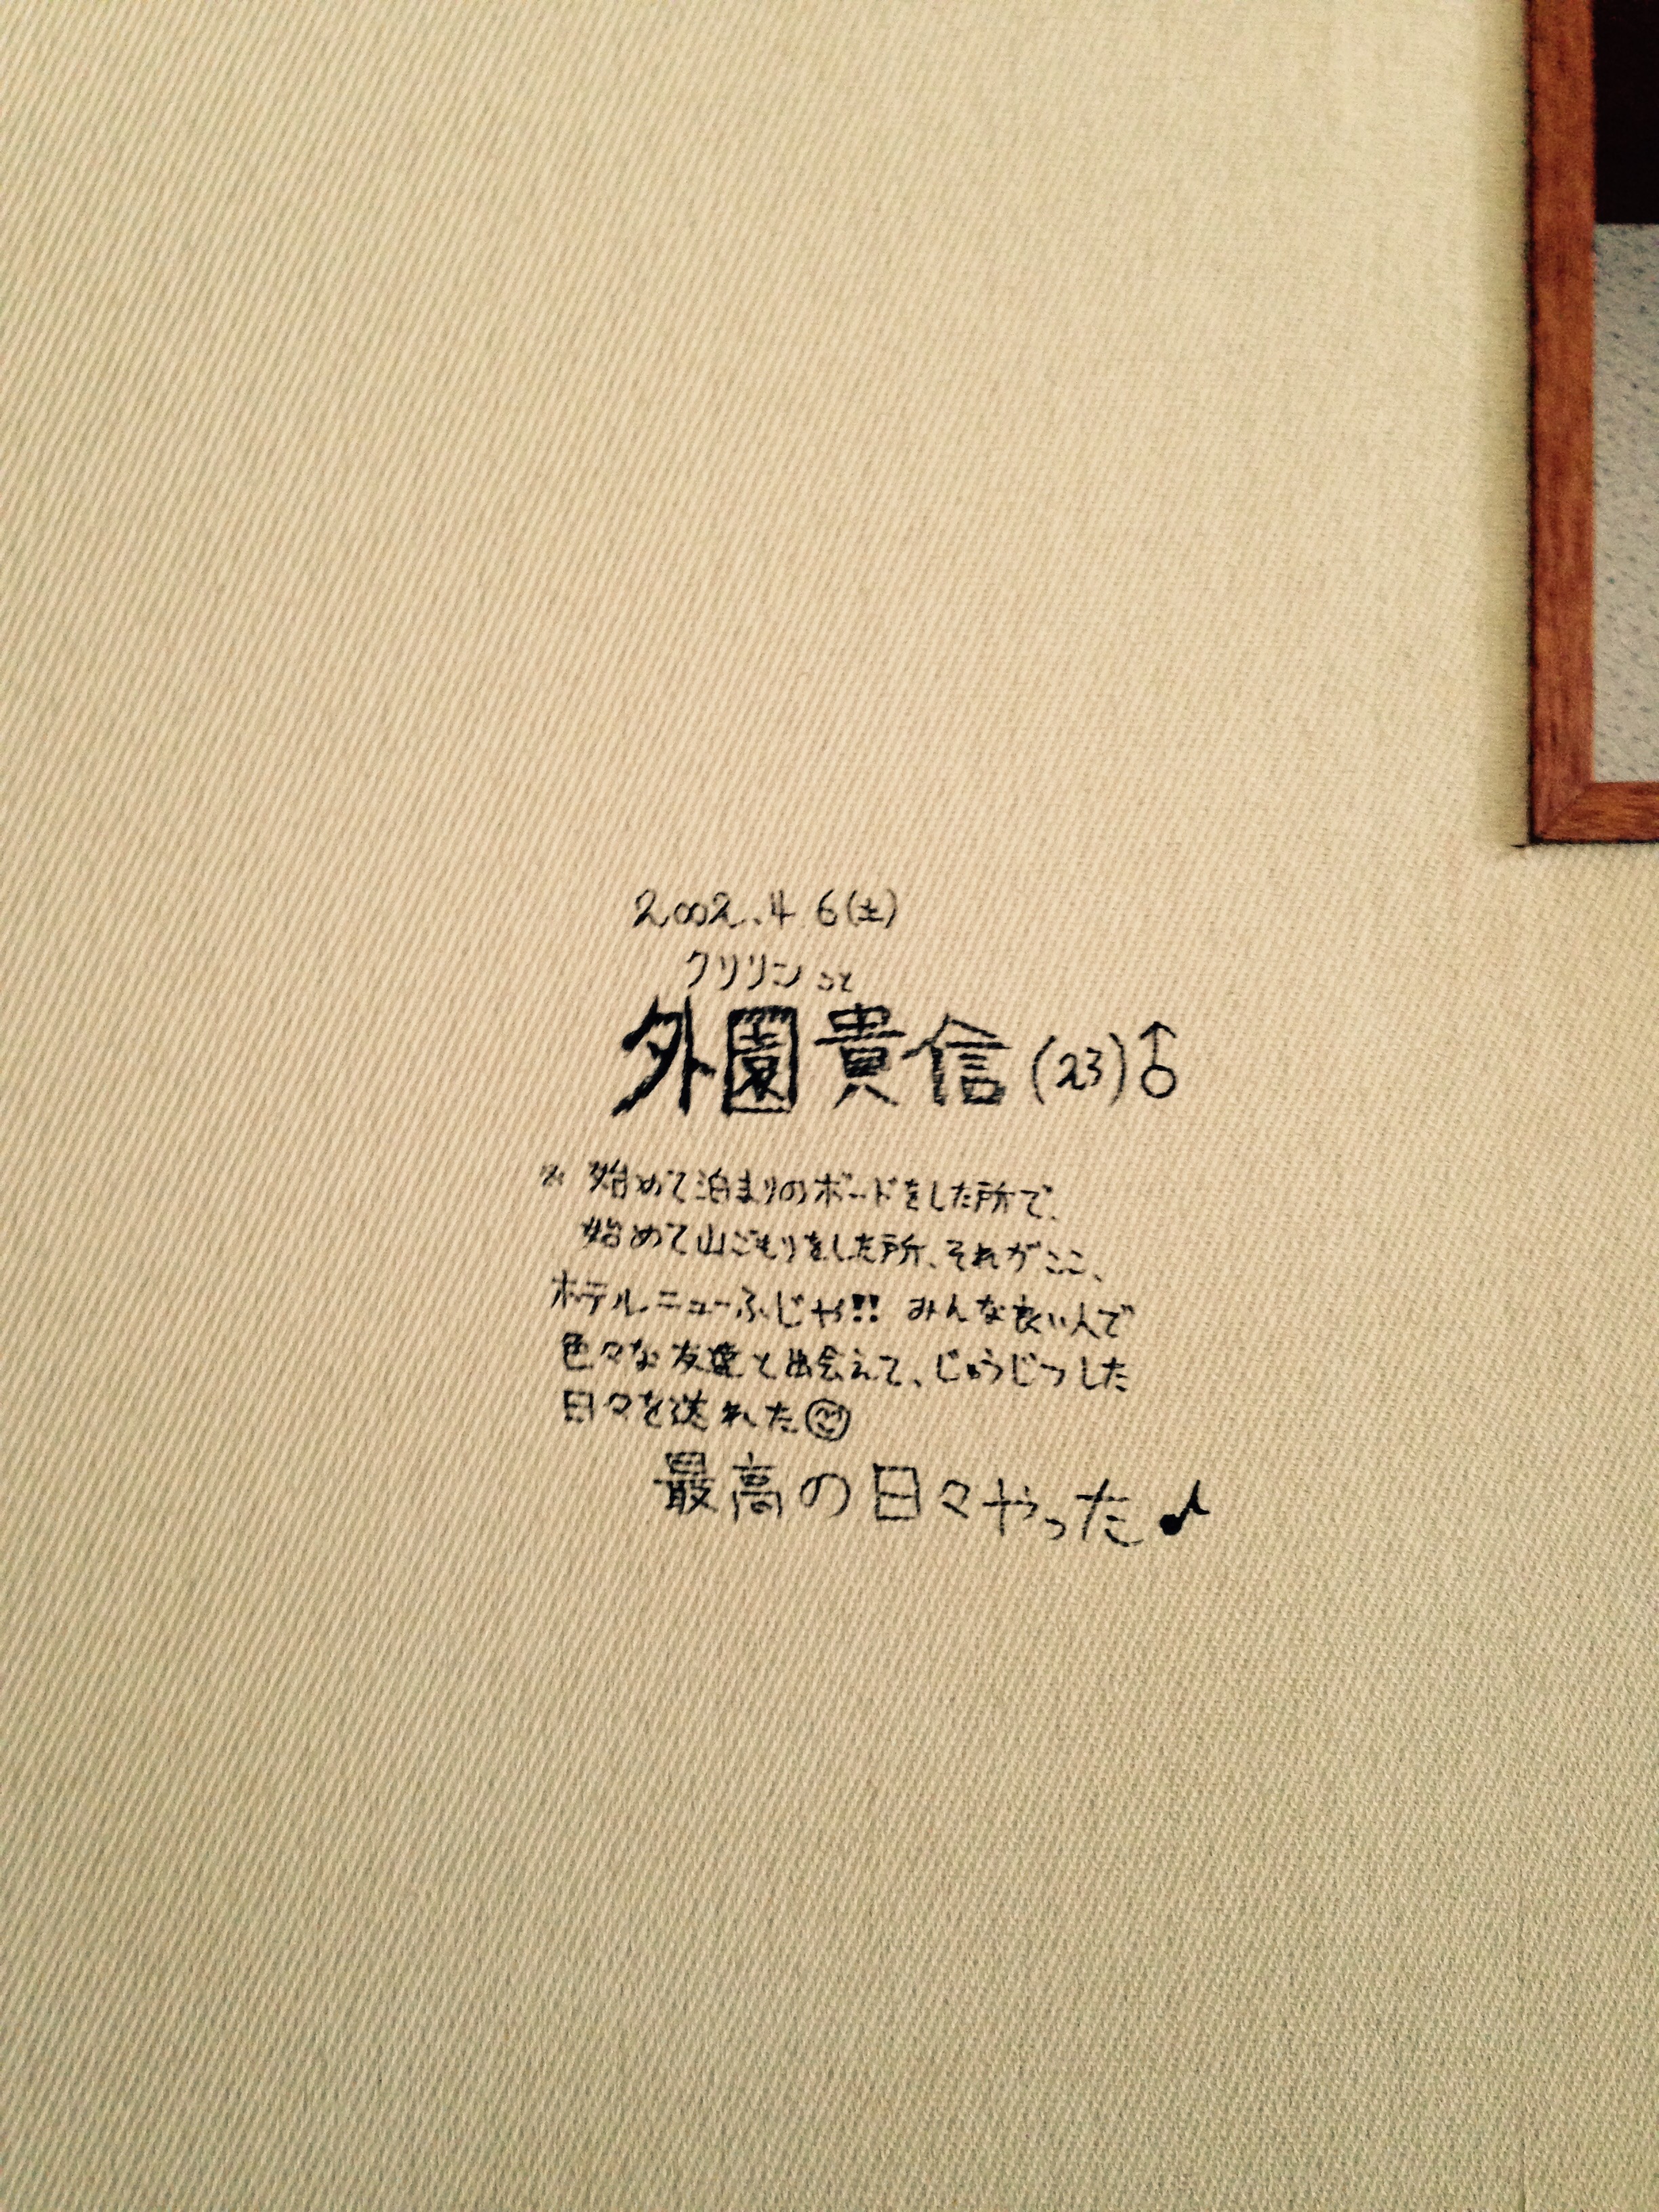 2002.4.6(土)
クリリンこと
外園貴信(23)♂
※ 始めて泊まりのボードをした所で、
始めて山ごもりをした所、それがここ、
ホテルニューふじや!! みんな良い人で
色々な友達と出会えて、じゅうじつした
日々を送れた☺
最高の日々やった♪